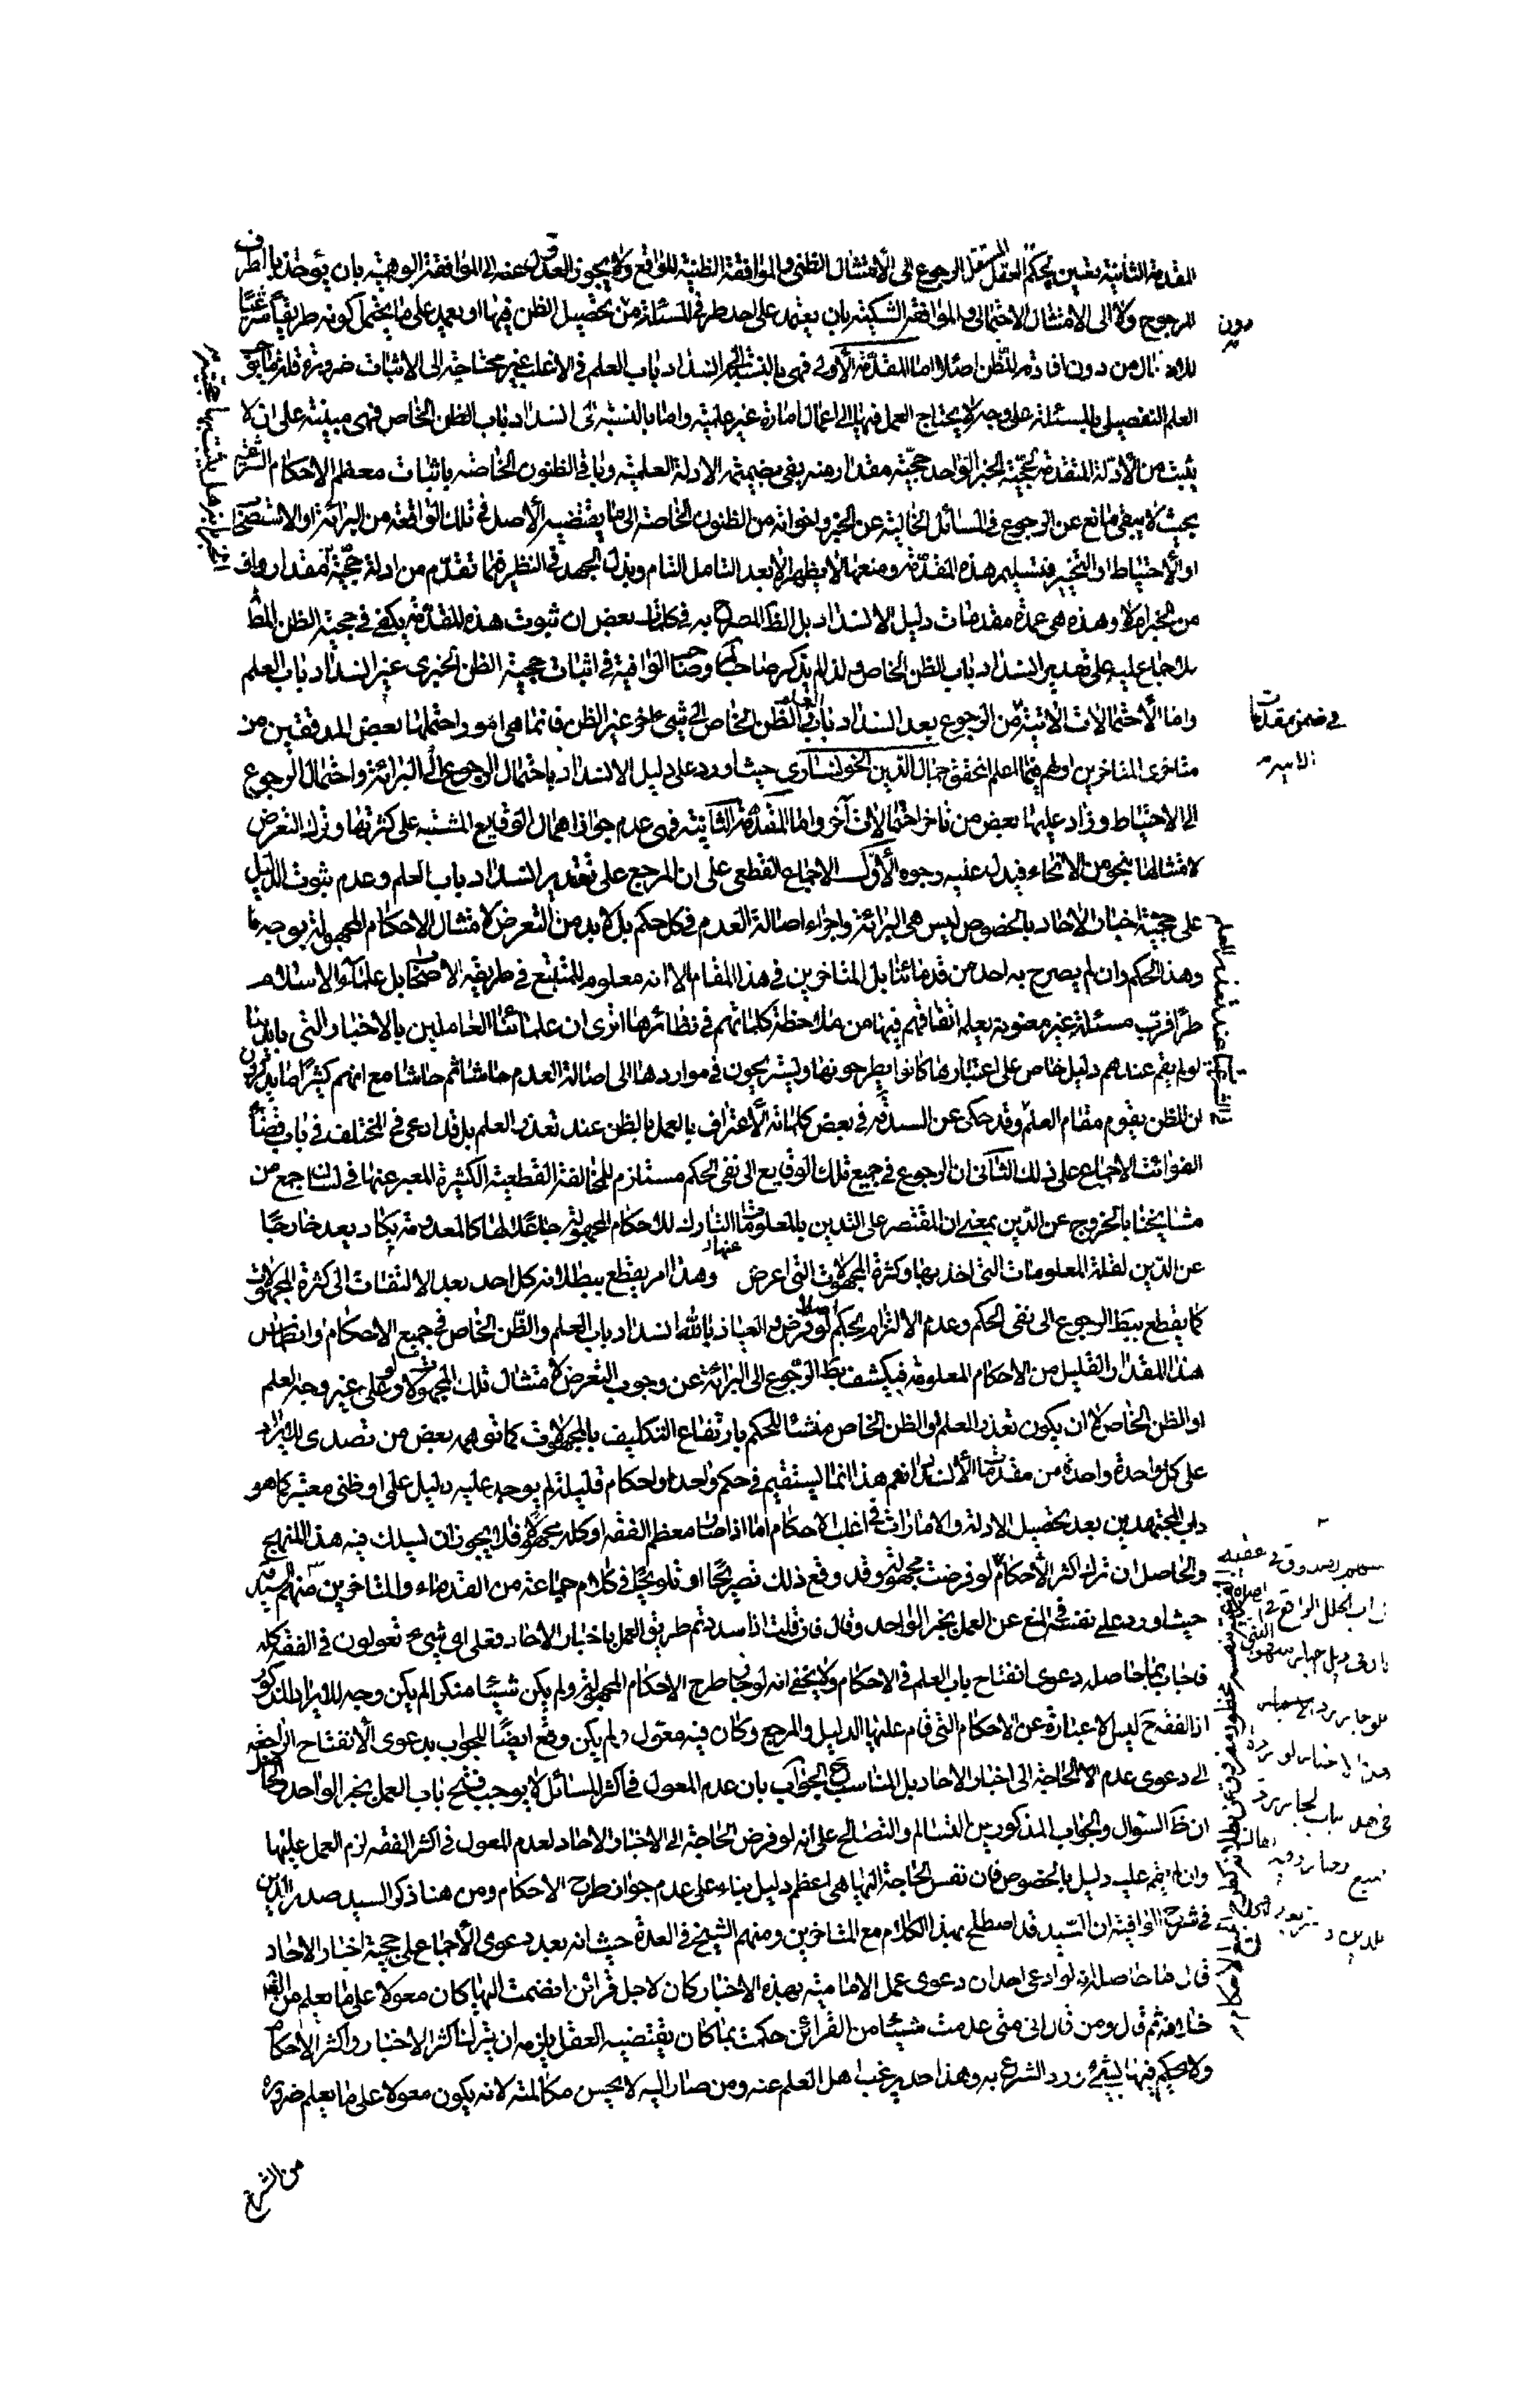 المقدمة الثانية تعين بحكم العقل المستقل الرجوع الى الامتثال الظنى والموافقة الظنية للواقع ولا يجوز العدول عنه الى الموافقة الوهمية بان يؤخذ بالطرف
المرجوح ولا الى الامتثال الاحتمالى والموافقة الشكية بان يعتمد على احد طرفى المسئلة من دون تحصيل الظن فيها او يعتمد على ما يحتمل كونه طريقا شرعيا
للامتثال من دون افادته للظن اصلا اما المقدمة الأولى فهى بالنسبة الى انسداد باب العلم فى الاغلب غير محتاجة الى الاثبات ضرورة قلة ما يوجب
العلم التفصيلى بالمسئلة على وجه لا يحتاج العمل فيها الى اعمال امارة غير علمية واما بالنسبة الى انسداد باب الظن الخاص فهى مبنية على ان لا
يثبت من الأدلة المتقدمة لحجية الخبر الواحد حجية مقدار منه يفى بضميمة الادلة العلمية وباقى الظنون الخاصة باثبات معظم الاحكام الشرعية
بحيث لا يبقى مانع عن الرجوع فى المسائل الخالية عن الخبر واخواته من الظنون الخاصة الى ما يقتضيه الأصل فى تلك الواقعة من البرائة او الاستصحاب
او الاحتياط او التخيير فتسليم هذه المقدمة ومنعها لا يظهر الا بعد التامل التام وبذل الجهد فى النظر فيما تقدم من ادلة حجية الخبر مقدار واف
من الخبر ام لا وهذه هى عمدة مقدمات دليل الانسداد بل الظ المصرح به فى كلمات بعض ان ثبوت هذه المقدمة يكفى فى حجية الظن المط
للاجماع عليه على تقدير انسداد باب الظن الخاص ولذا لم يذكر صاحب لم وصاحب الوافية فى اثبات حجية الظن الخبرى غير انسداد باب العلم
واما الاحتمالات الاتية فى ضمن مقدمات من الرجوع بعد انسداد باب العلم والظن الخاص الى شىء اخر غير الظن فانما هى امور احتملها بعض المدققين من
متاخرى المتاخرين اولهم فيما اعلم المحقق جمال الدين الخوانسارى حيث اورد على دليل الانسداد باحتمال الرجوع الى البرائة واحتمال الرجوع
الى الاحتياط وزاد عليها بعض من تاخر احتمالات آخر واما المقدمة الثانية فهى عدم جواز اهمال الوقايع المشتبهة على كثرتها وترك التعرض
لامتثالها بنحو من الانحاء فيدل عليه وجوه الأول الاجماع القطعى على ان المرجع على تقدير انسداد باب العلم وعدم ثبوت الدليل
على حجية اخبار الاحاد بالخصوص ليس هى البرائة واجراء اصالة العدم فى كل حكم بل لا بد من التعرض لامتثال الاحكام المجهولة بوجه ما
وهذا الحكم وان لم يصرح به احد من قدمائنا بل المتاخرين فى هذا المقام الا انه معلوم للمتتبع فى طريقة الاصحاب بل علماء الاسلام
طرا فرب مسئلة غير معنونة يعلم اتفاقهم فيها من ملاحظة كلماتهم فى نظائرها اترى ان علمائنا العاملين بالاخبار التى بايدينا
لو لم يقم عندهم دليل خاص على اعتبارها كانوا يطرحونها ويستريحون فى مواردها الى اصالة العدم حاشا ثم حاشا مع انهم كثيرا ما يذكرون
ان الظن يقوم مقام العلم وقد حكى عن السيد قده فى بعض كلماته الاعتراف بالعمل بالظن عند تعذر العلم بل قد ادعى فى المختلف فى باب قضاء
الفوائت الاجماع على ذلك الثانى ان الرجوع فى جميع تلك الوقايع الى نفى الحكم مستلزم للمخالفة القطعية الكثيرة المعبر عنها فى لسان جمع من
مشايخنا بالخروج عن الدين بمعنى ان المقتصر على التدين بالمعلومات التارك للاحكام المجهولة جاعلا لها كالمعدومة يكاد يعد خارجا
عن الدين لقلة المعلومات التى اخذ بها وكثرة المجهولات التى اعرض عنها وهذا امر يقطع ببطلانه كل احد بعد الالتفات الى كثرة المجهولات
كما يقطع ببط الرجوع الى نفى الحكم وعدم الالتزام بحكم اصلا لو فرض والعياذ بالله انسداد باب العلم والظن الخاص فى جميع الاحكام وانطماس
هذا المقدار القليل من الاحكام المعلومة فيكشف بط الرجوع الى البرائة عن وجوب التعرض لامتثال تلك المجهولات ولو على غير وجه العلم
او الظن الخاص لا ان يكون تعذر العلم او الظن الخاص منشئا للحكم بارتفاع التكليف بالمجهولات كما توهمه بعض من تصدى للايراد
على كل واحدة واحدة من مقدمات الانسداد نعم هذا انما يستقيم فى حكم واحد او احكام قليلة لم يوجد عليه دليل علمى او ظنى معتبر كما هو
داب المجتهدين بعد تحصيل الادلة والامارات فى اغلب الاحكام اما اذا صار معظم الفقه او كله مجهولا فلا يجوز ان يسلك فيه هذا المنهج
والحاصل ان ترك اكثر الأحكام لو فرضت مجهولة وقد وقع ذلك تصريحا او تلويحا فى كلام جماعة من القدماء والمتاخرين منهم السيد قده
حيث اورد على نفسه فى المنع عن العمل بخبر الواحد وقال فان قلت اذا سددتم طريق العمل باخبار الاحاد فعلى اى شىء تعولون فى الفقه كله
فاجاب بما حاصله دعوى انفتاح باب العلم فى الاحكام ولا يخفى انه لو جاز طرح الاحكام المجهولة ولم يكن شيئا منكرا لم يكن وجه للايراد المذكور
اذ الفقه ح ليس الا عبارة عن الاحكام التى قام عليها الدليل والمرجع وكان فيه معول ولم يكن وقع ايضا للجواب بدعوى الانفتاح الراجعة
الى دعوى عدم الحاجة الى اخبار الاحاد بل المناسب ح الجواب بان عدم المعول فى اكثر المسائل لا يوجب فتح باب العمل بخبر الواحد والحاصل
ان ظ السؤال والجواب المذكورين التسالم والتصالح على انه لو فرض الحاجة الى الاخبار الاحاد لعدم المعول فى اكثر الفقه لزم العمل عليها
وان لم يقم عليه دليل بالخصوص فان نفس الحاجة اليها هى اعظم دليل بناء على عدم جواز طرح الاحكام ومن هنا ذكر السيد صدر الدين
فى شرح الوافية ان السيد قد اصطلح بهذا الكلام مع المتاخرين ومنهم الشيخ فى العدة حيث انه بعد دعوى الأجماع على حجية اخبار الاحاد
قال ما حاصله انه لو ادعى احد ان دعوى عمل الامامية بهذه الاخبار كان لاجل قرائن انضمت اليها كان معولا على ما يعلم من الضرورة
خلافه ثم قال ومن قال انى متى عدمت شيئا من القرائن حكمت بما كان يقتضيه العقل يلزمه ان يترك اكثر الاخبار واكثر الاحكام
ولا يحكم فيها بشىء ورد الشرع به وهذا حد يرغب اهل العلم عنه ومن صار اليه لا يحسن مكالمته لانه يكون معولا على ما يعلم ضرورة
من الشرع